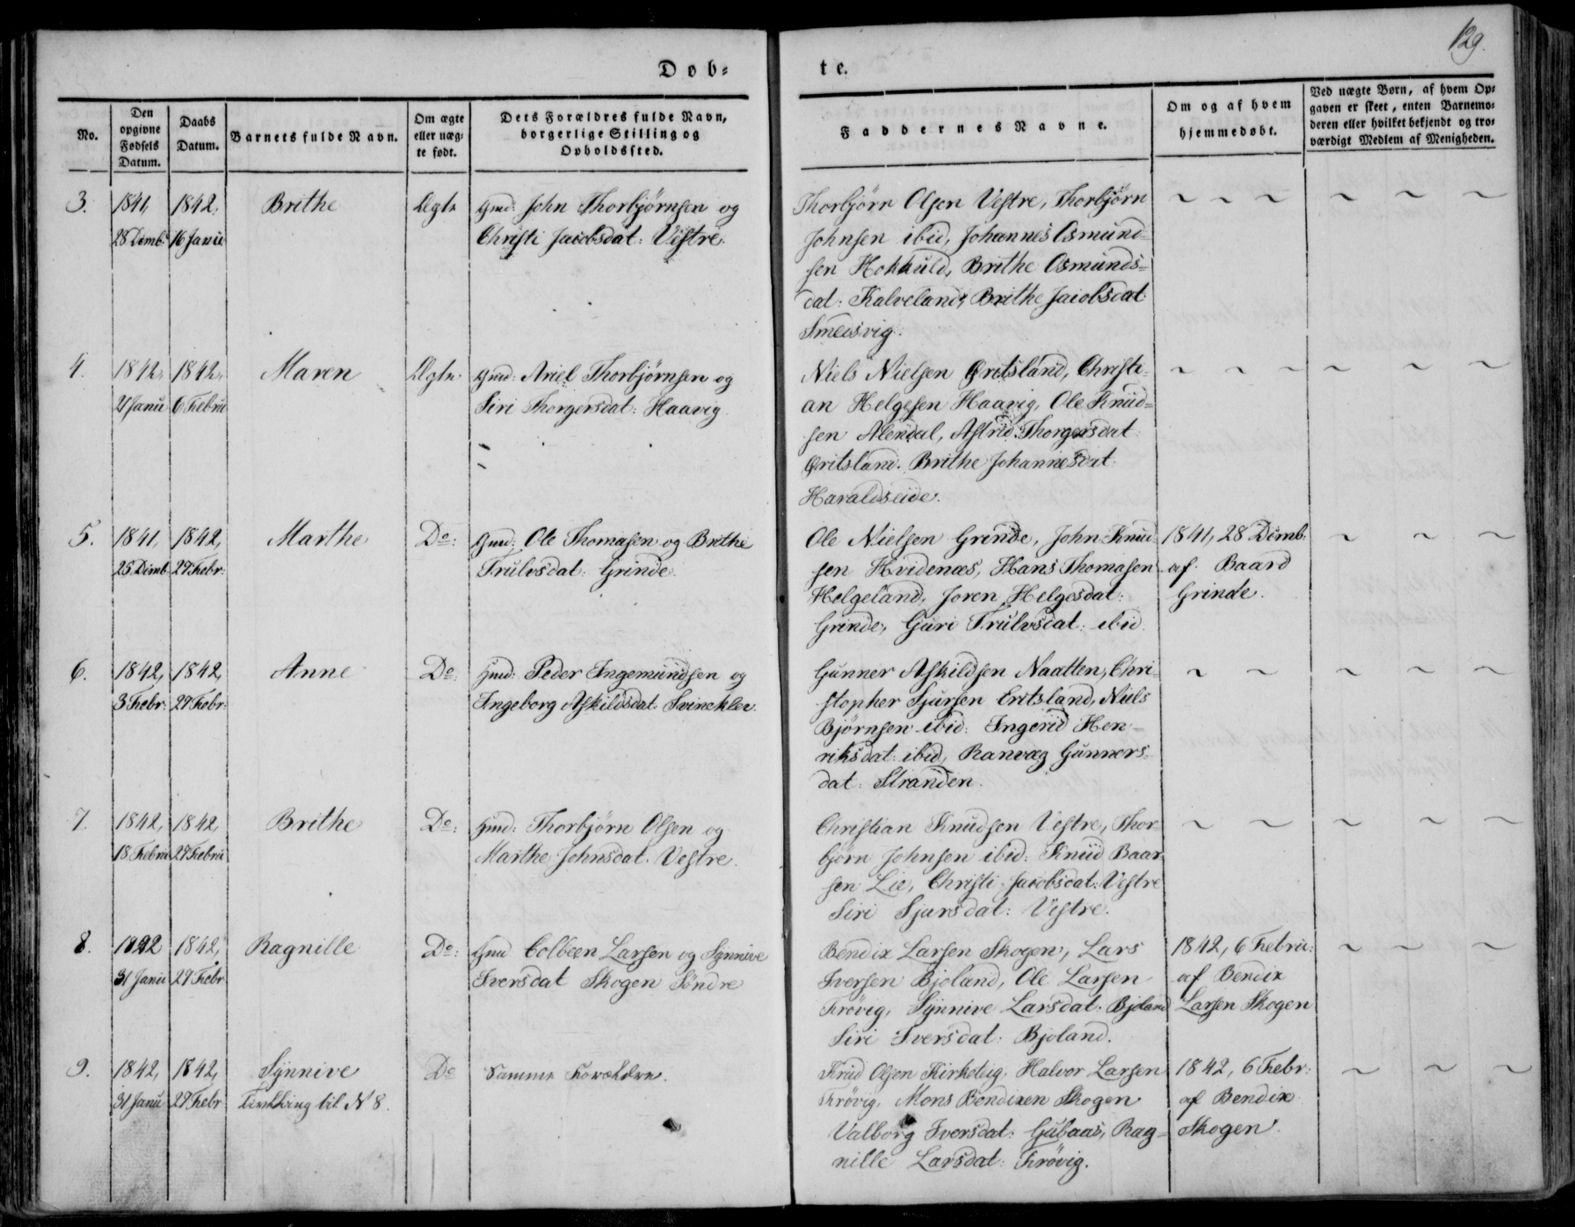 129.
Døb-
te.
No.
Den opgivne Fødsels Datum.
Daabs Datum.
Barnets fulde Navn.
Om ægte eller uægte født.
Dets Forældres fulde Navn, borgerlige Stilling og Opholdssted.
Faddernes Navne.
Om og af hvem hjemmedøbt.
Ved uægte Børn, af hvem Opgaven er skeet, enten Barnemoderen eller hvilket bekjendt og troværdigt Medlem af Menigheden.
3.
1841,
28 Dcmb:
1842,
16 Janu
Brithe
Ægte
Gmd: John Thorbjørnsen og
Christi Jacobsdat: Vestre.
Thorbjørn Olsen Vestre, Thorbjørn
Johnsen ibid, Johannes Osmund-
sen Hokkuld, Brithe Osmunds-
dat: Kalveland, Brithe Jacobsdat
Smedsvig.
4.
1842,
21 Janu
1842,
6 Febru
Maren
Ægte
Gmd: Ariel Thorbjørnsen og
Siri Thorgersdat: Haavig
Niels Nielsen Eritsland, Christi-
an Helgesen Haavig, Ole Knud-
sen Alendal, Astrid Thorgersdat
Eritsland. Brithe Johannesdat.
Haraldseide.
5.
1841,
25 Dcmb
1842,
27 Febr:
Marthe
Do:
Gmd: Ole Thomasen og Brithe
Trulvsdat: Grinde
Ole Nielsen Grinde, John Knud-
sen Hvidenæs, Hans Thomasen
Helgeland, Joren Helgesdat:
Grinde, Guri Trulvsdat: ibid.
1841, 28 Dcmb:
af Baard
Grinde.
6.
1842,
3 Febr:
1842,
27 Febr:
Anne
Do:
Gmd: Peder Ingemundsen og
Ingeborg Askildsdat. Svineklev.
Gunner Askildsen Naatten, Chri-
stopher Sjursen Eritsland, Niels
Bjørnsen ibid: Ingerid Hen-
riksdat: ibid, Ranvæg Gunners-
dat: Stranden.
7.
1842,
18 Febru
1842,
27 Febru
Brithe
Do:
Gmd: Thorbjørn Olsen og
Marthe Johnsdat. Vestre.
Christian Knudsen Vestre, Thor-
bjørn Johnsen ibid: Knud Baar-
sen Lie, Christi Jacobsdat: Vestre
Siri Sjursdat: Vestre.
8.
1842
31 Janu
1842,
27 Febr
Ragnille
Do:
Gmd Colbeen Larsen og Synnive
Iversdat Skogen Søndre
Bendix Larsen Skogen, Lars
Iversen Bjoland, Ole Larsen
Frøvig, Synnive Larsdat: Bjoland
Siri Iversdat: Bjoland.
1842, 6 Febru:
af Bendix
Larsen Skogen
9.
1842,
31 Janu
1842,
27 Febr
Synnive
Tvilling til N 8.
Do
Samme Forældre.
Olsen Halvor Larsen
Frøvig, Mons Bendixen Skogen
Valborg Iversdat: Gubaas, Rag-
nille Larsdat: Frøvig.
1842, 6 Febr:
af Bendix
Skogen.